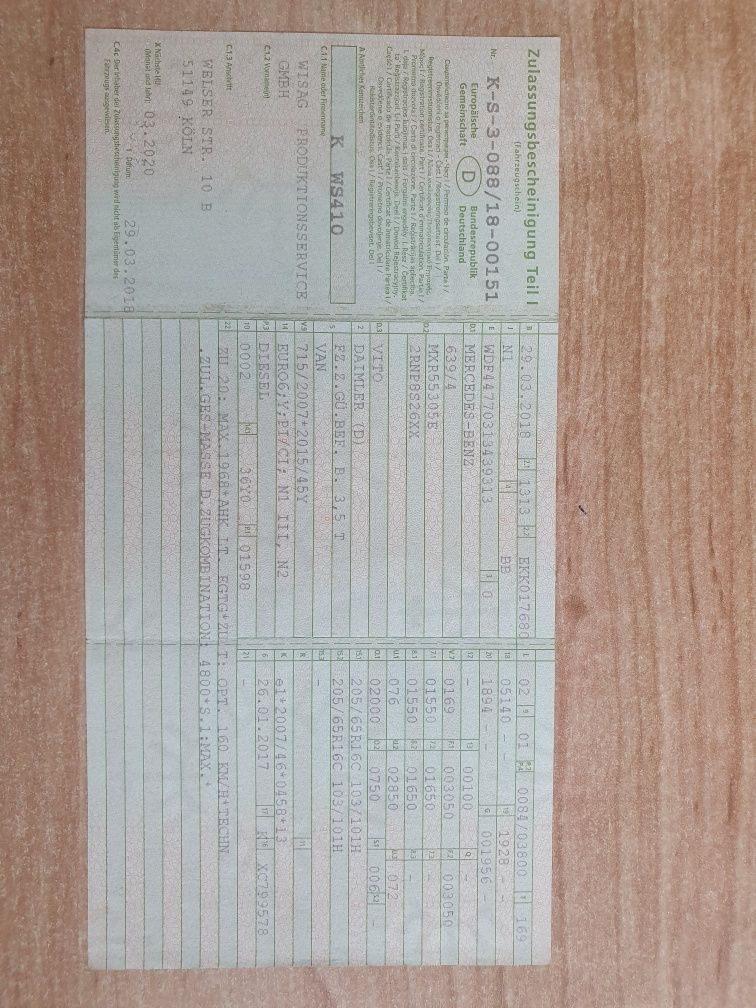 Zulassungsbescheinigung Teil I
(Fahrzeugschein)
Nr. K-S-3-088/18-00151
Europäische Gemeinschaft
D
Bundesrepublik Deutschland
A Amtliches Kennzeichen
K WS410
C.1.1 Name oder Firmenname
WISAG PRODUKTIONSSERVICE
GMBH
C.1.2 Vorname(n)
C.1.3 Anschrift
WELSER STR. 10 B
51149 KÖLN
X Nächste HU
(Monat und Jahr) 03.2020
I Datum: 29.03.2018
C.4c Der Inhaber der Zulassungsbescheinigung wird nicht als Eigentümer des
Fahrzeugs ausgewiesen.
B 29.03.2018 2.1 1313 2.2 EKK017680
J N1 4 BB
E WDF44770313439313 3 0
D.1 MERCEDES-BENZ
639/4
D.2 MXR55305E
2RNP8S26XX
D.3 VITO
2 DAIMLER (D)
5 FZ.Z.GÜ.BEF. B. 3,5 T
VAN
V.9 715/2007*2015/45Y
14 EURO6;Y;PI/CI; N1 III, N2
P.3 DIESEL
10 0002 14.1 36Y0 P.1 01598
L 02 9 01 P.2 P.4 0084/03800 T 169
18 05140 – – 19 1928 – –
20 1894 – – G 001956 –
12 – 13 00100 Q –
V.7 0169 F.1 003050 F.2 003050
7.1 01550 7.2 01650 7.3 –
8.1 01550 8.2 01650 8.3 –
U.1 076 U.2 02850 U.3 072
O.1 02000 O.2 0750 S.1 006 S.2 –
15.1 205/65R16C 103/101H
15.2 205/65R16C 103/101H
15.3 –
R 11
K e1*2007/46*0458*13
6 26.01.2017 17 K 16 XC799578
21 –
22 ZU 20: MAX.1968*AHK LT. EGTG*ZU T: OPT. 160 KM/H*TECHN
.ZUL.GES-MASSE D.ZUGKOMBINATION: 4800*S.1:MAX.*